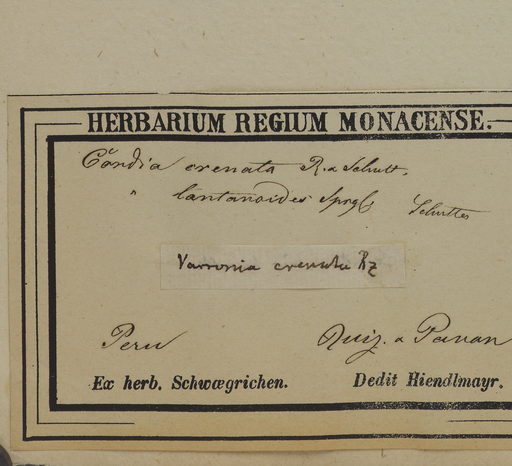 HERBARIUM REGIUM MONACENSE.
Cordia crenata R. a Schult.
" lantanoides Sprgl Schultes
Varronia crenata Rz
Peru Ruiz. a Pavan
Ex herb. Schwœgrichen. Dedit Hiendlmayr.